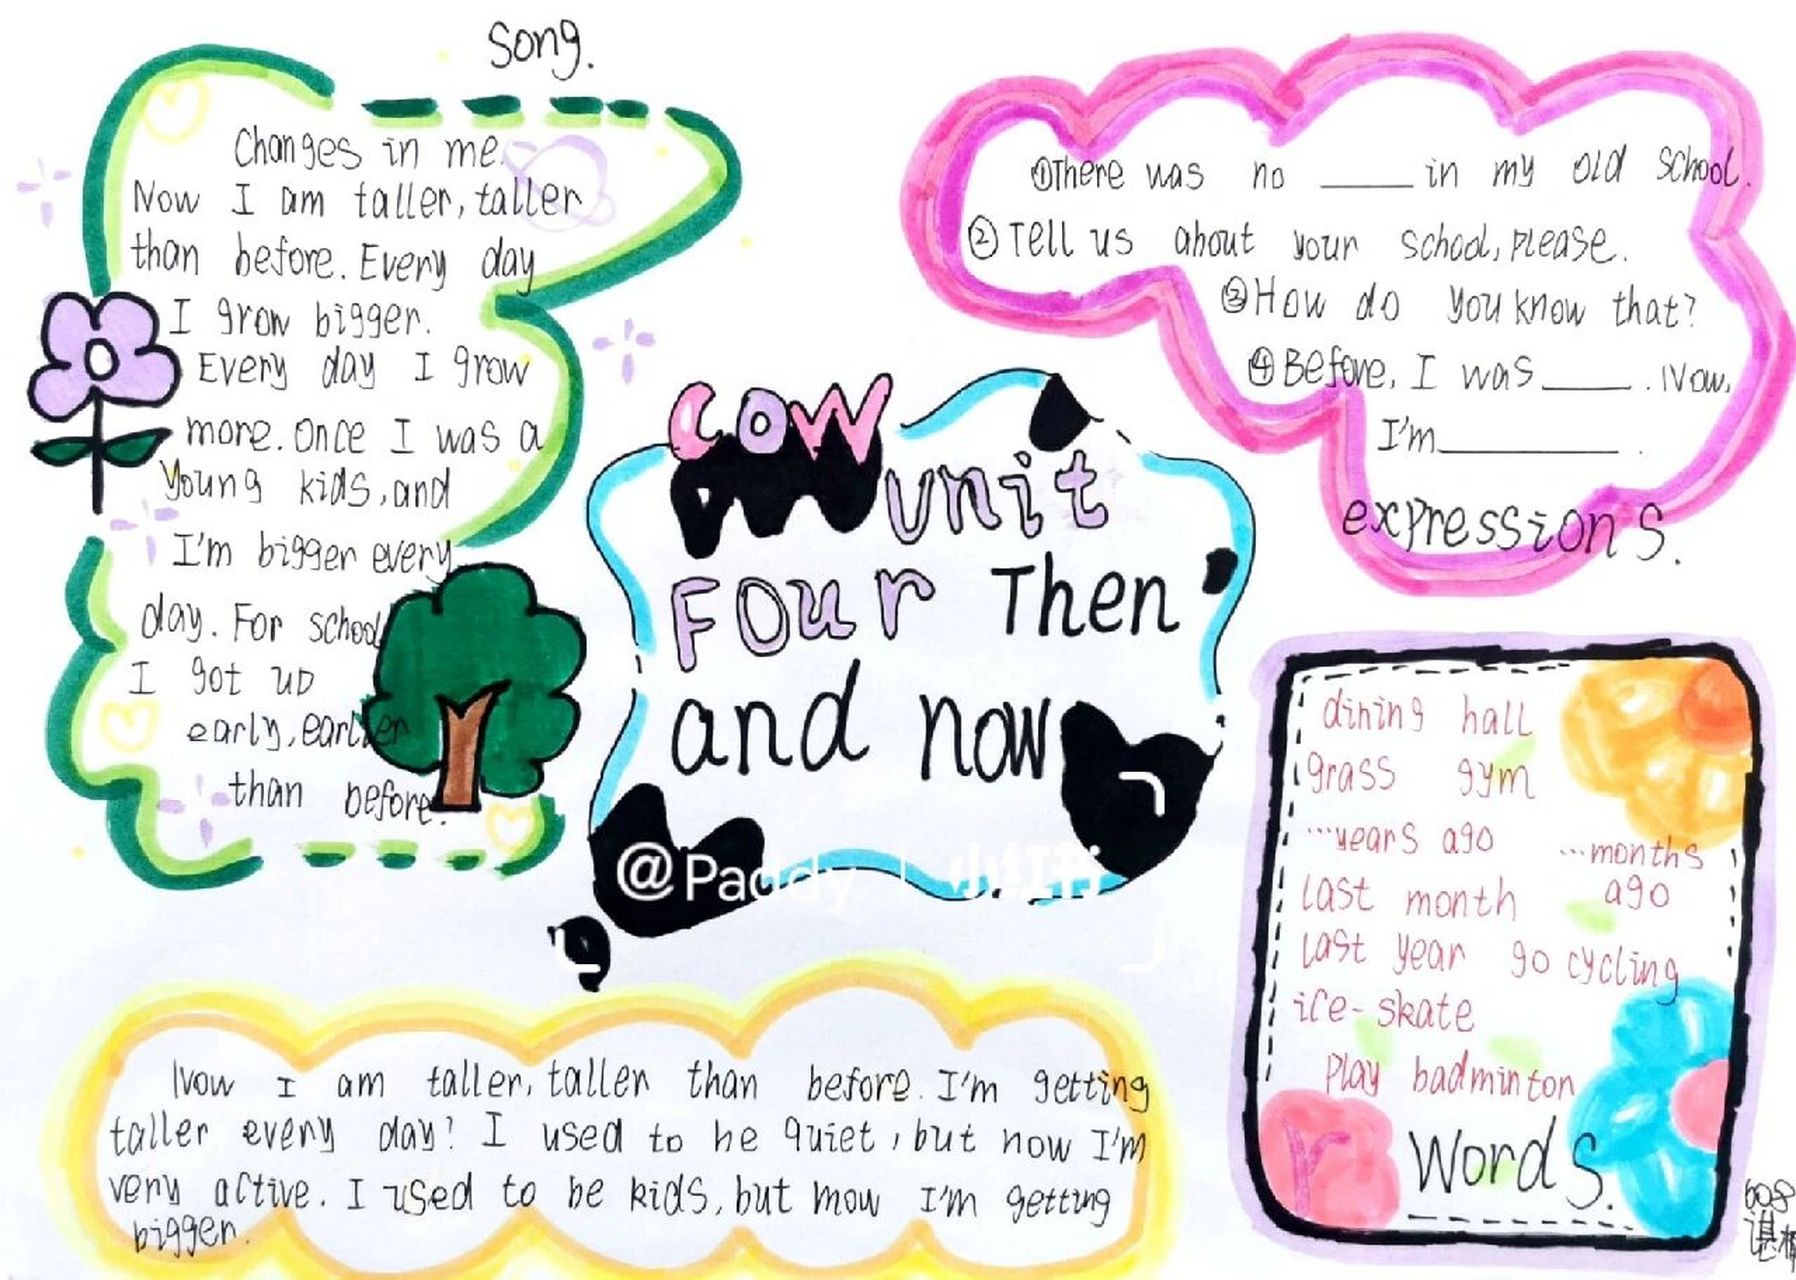 Song.
Changes in me.
Now I am taller, taller
than before. Every day
I grow bigger.
Every day I grow
more. Once I was a
young kids, and
I'm bigger every
day. For school
I got up
early, earlier
than before.
cow
unit
Four Then
and now
①There was no ____ in my old school.
②Tell us about your school, please.
③How do you know that?
④Before, I was ____. Now,
I'm ____.
expressions.
dining hall
grass gym
...years ago ...months
ago
last month
last year go cycling
ice-skate
play badminton
Words.
Now I am taller, taller than before. I'm getting
taller every day? I used to be quiet, but now I'm
very active. I used to be kids, but mow I'm getting
bigger.
@Paddy | 小红书
608